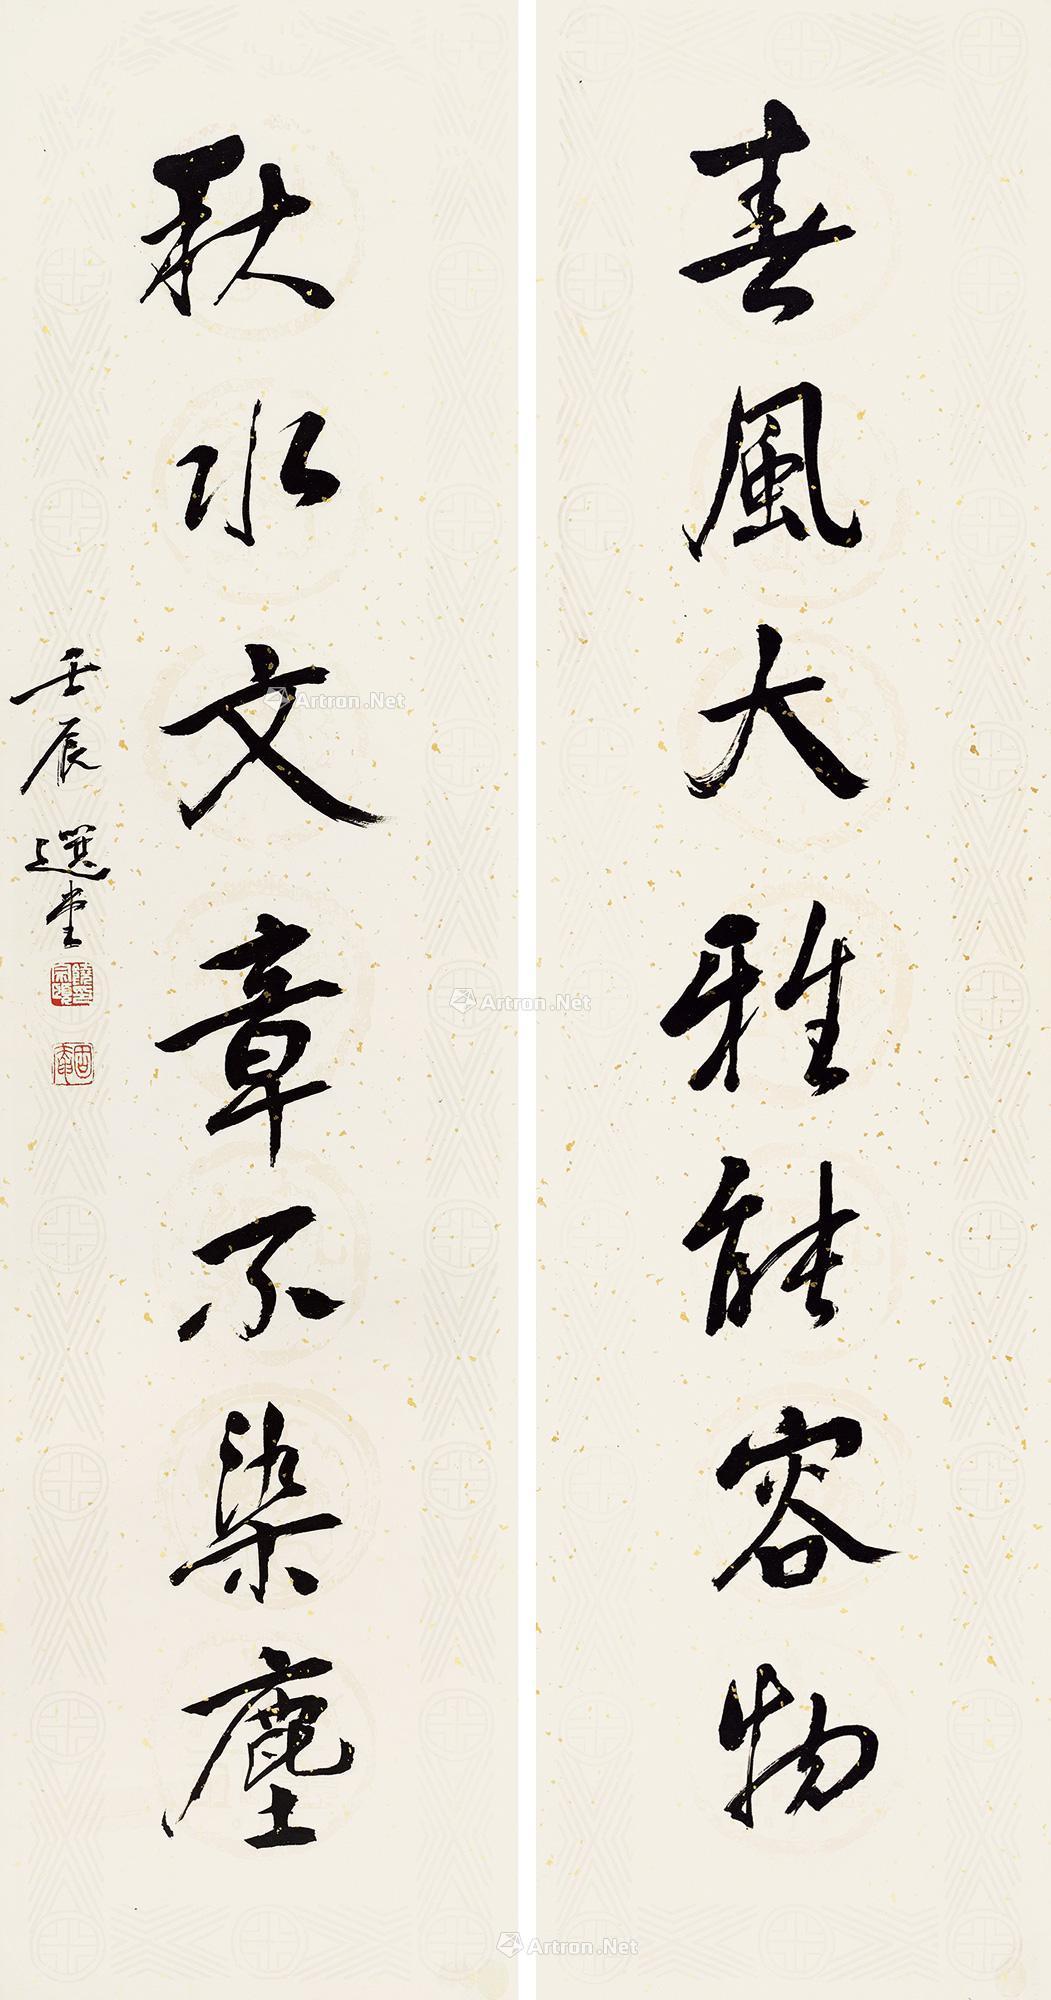 春風大雅能容物
秋水文章不染塵
壬辰 選堂
饒宗頤印
Artron.Net
Artron.Net
Artron.Net